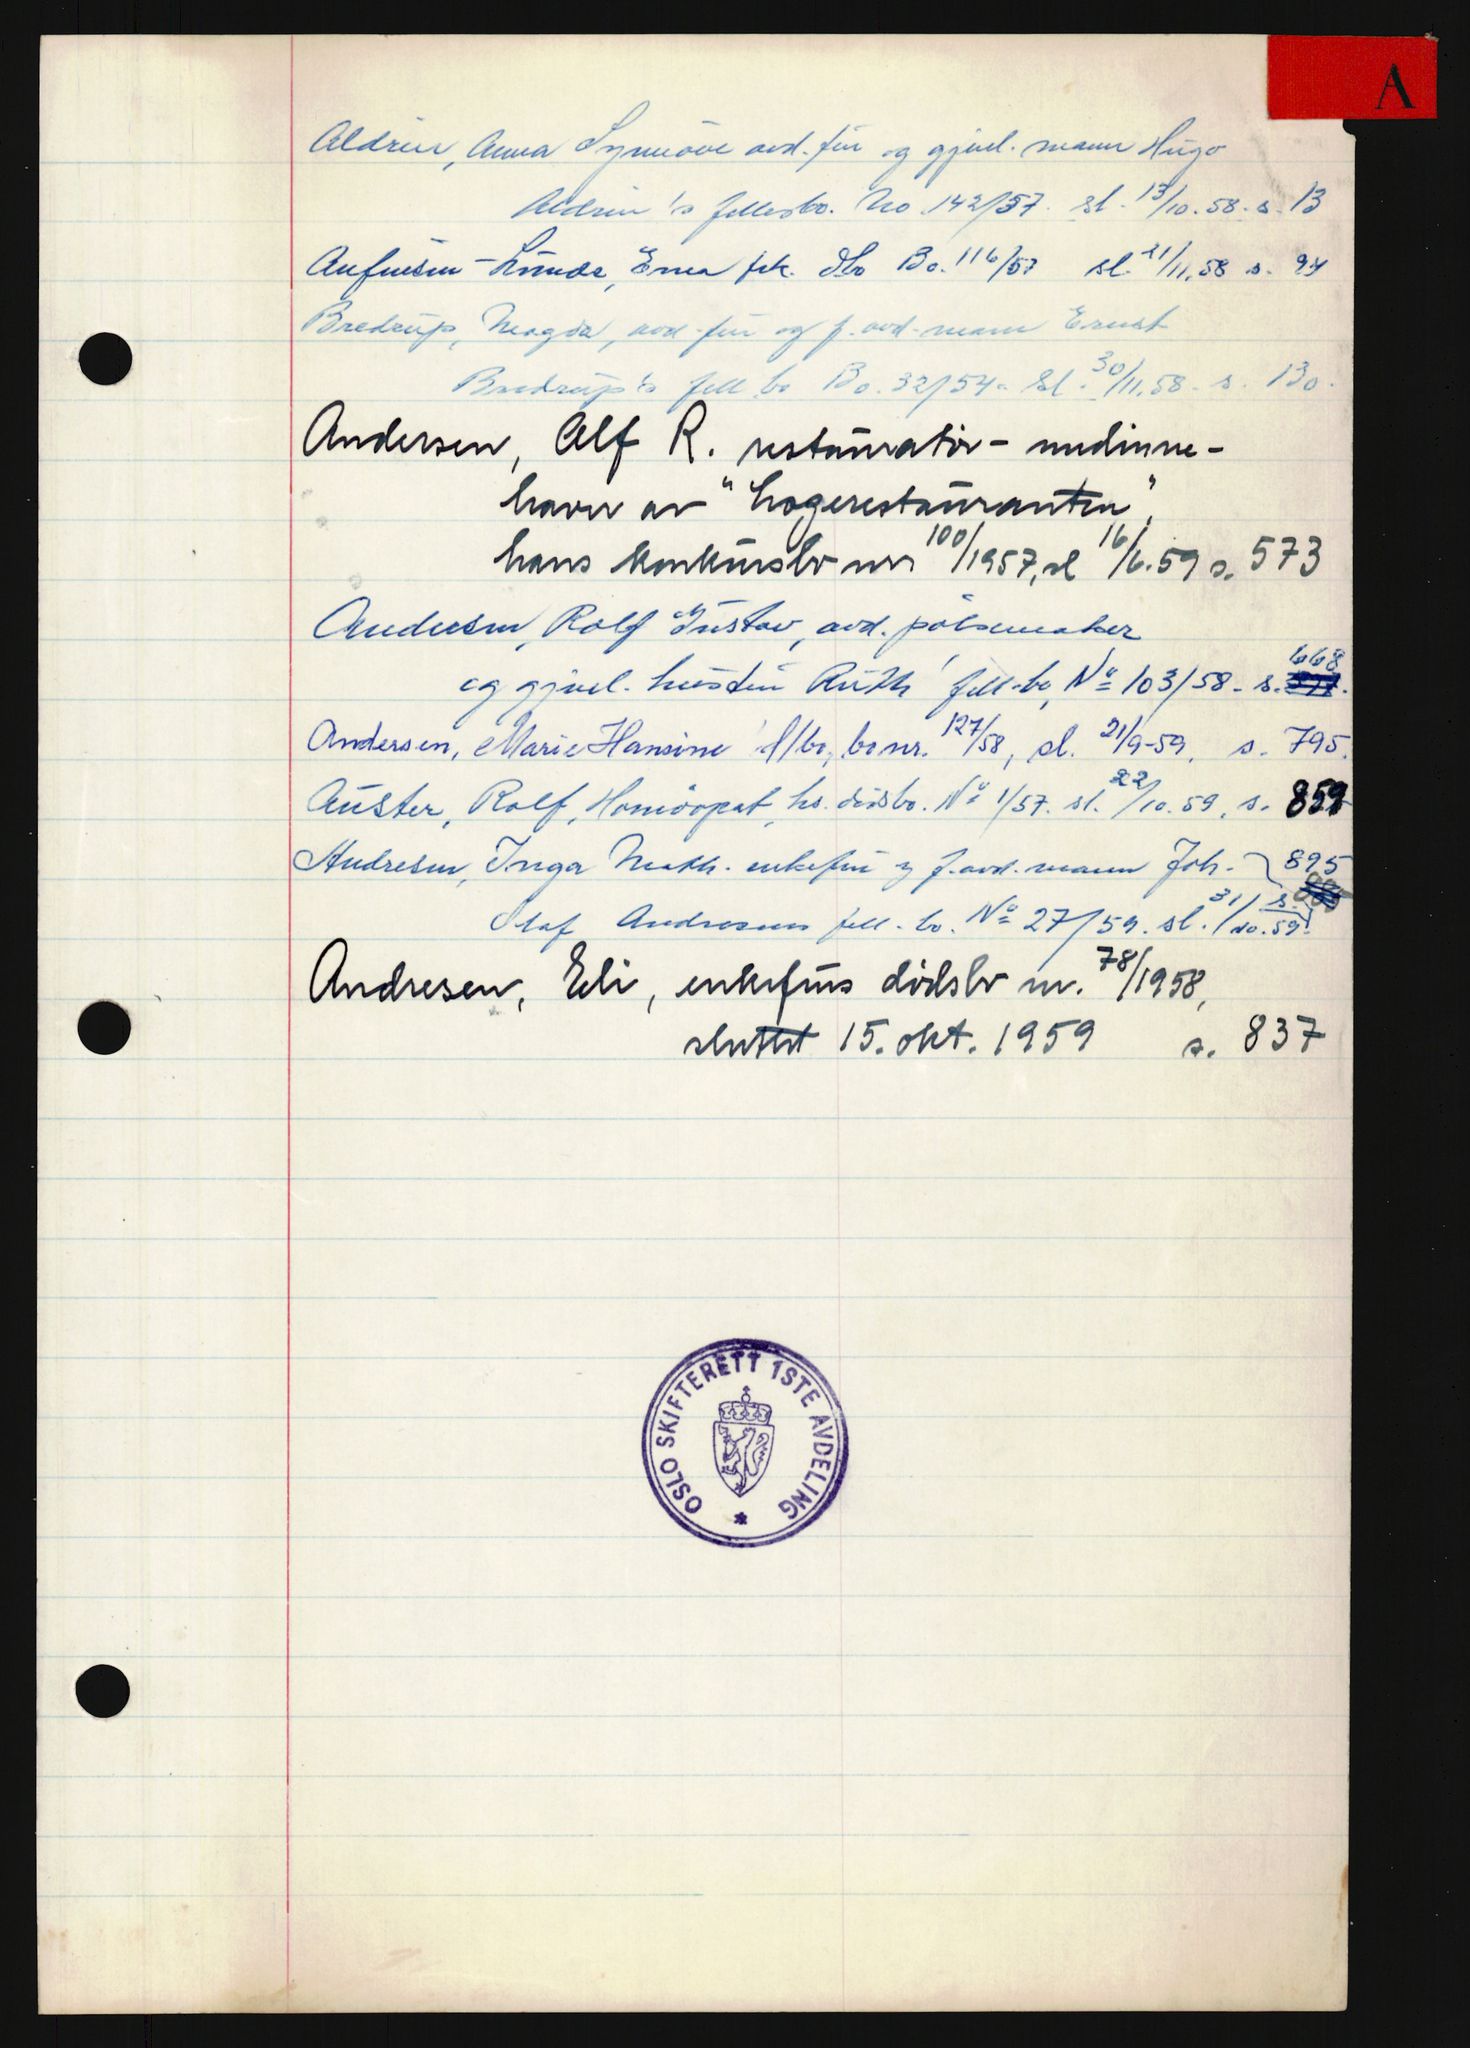 A
Aldrin, Anna Synnöve avd. frü og gjenl. mann Hugo
Aldrin's fellesbo. No 142/57. sl. 13/10.58. s. 13
Anfinsen-Lunde, Erna frk. dbo Bo. 116/57 sl. 21/11.58 s. 94
Bredrup, Magda, avd. frü og f. avd. mann Ernst
Bredrup's fell. bo Bo. 32/54. sl. 30/11.58. s. 130.
Andersen, Alf R. restauratör - medinne-
haver av "Logerestauranten",
hans konkursbo nr 100/1957, sl 16/6.59 s. 573
Andersen, Rolf Gustav, avd. pölsemaker
668
og gjenl. hustru Ruth' fell. bo, No 103/58. s.
Andersen, Marie Hansine' d/bo, bo nr. 127/58, sl. 21/9-59, s. 795.
Auster, Rolf, Homöopat, hs. dödsbo. No 1/57. sl. 22/10.59, s. 859
Andresen, Inga Math. enkefru og f. avd. mann Joh. 895
Olaf Andresens fell. bo. No 27/59. sl. 31/10.59. s.
Andresen, Eli, enkefrus dödsbo nr. 78/1958,
sluttet 15. okt. 1959 s. 837
OSLO SKIFTERETT 1STE AVDELING